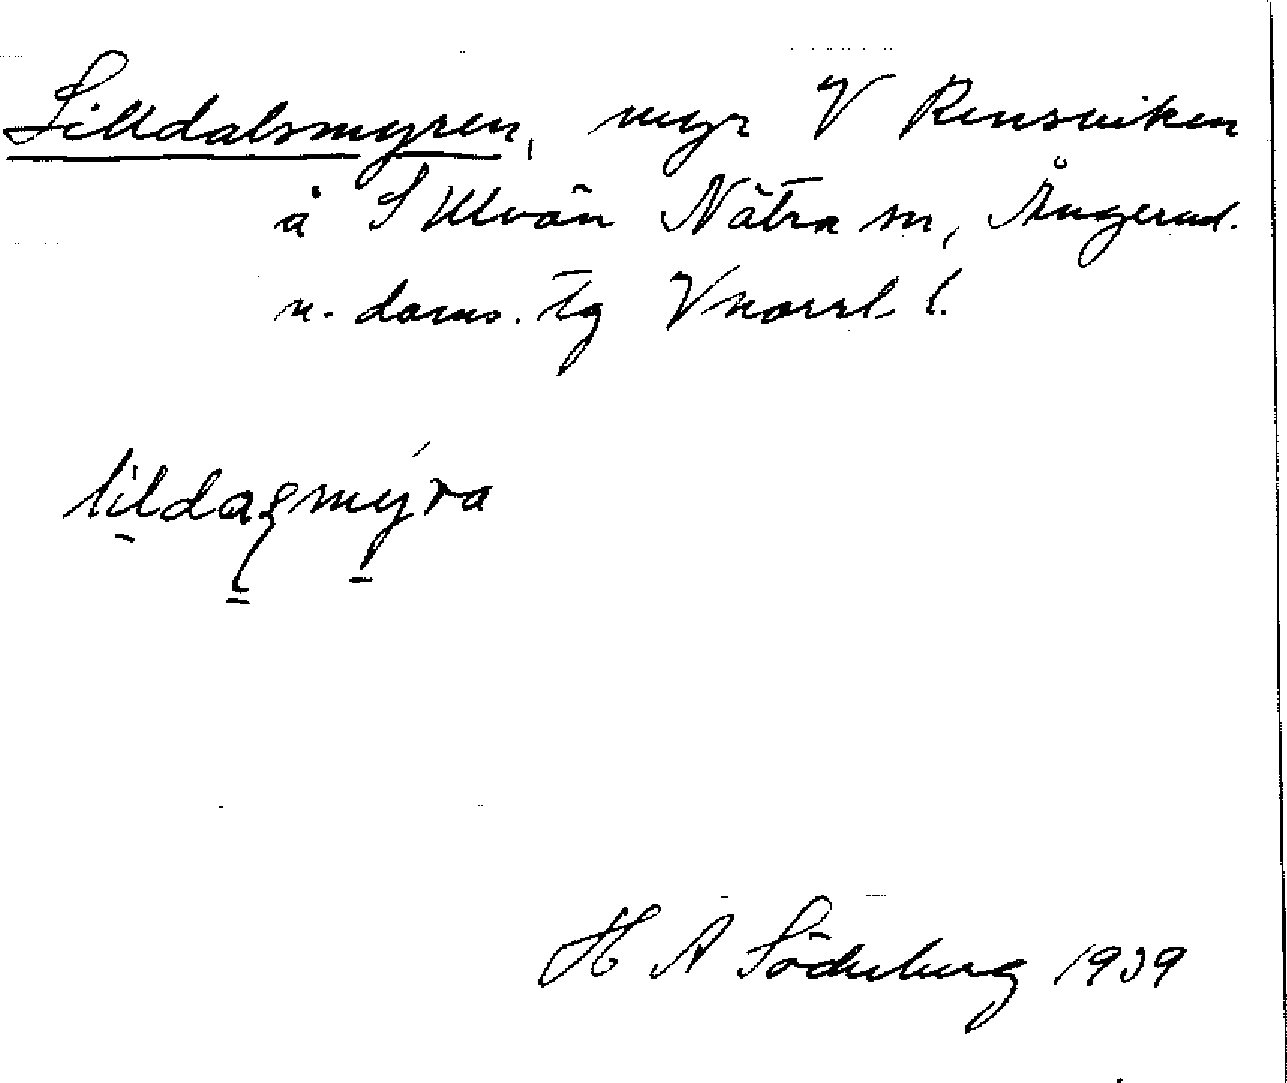 Lilldalsmyren, myr V Rensviken
å S Ulvön Nätra sn, Ångerml.
n. doms. tg Vnorrl l.
lildaſmýra
H A Söderberg 1939